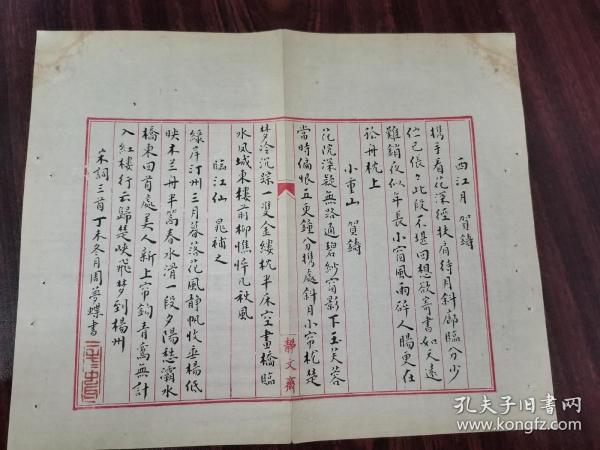 西江月 賀鑄
携手看花深徑扶肩待月斜廊臨分少
伫已倀々此段不堪回想欲寄書如天遠
難銷夜似年長小窗風雨碎人腸更在
舟枕上
小重山 賀鑄
花院深疑無路通碧紗窗影下玉芙蓉
當時偏恨五更鐘分携處斜月小帘櫳楚
梦冷沉踪一雙金縷枕半床空畫橋臨
水鳳城東樓前柳憔悴几秋風
臨江仙 晁補之
綠岸汀州三月暮落花風靜帆收垂楊低
映木兰舟半篙春水滑一段夕陽愁灞水
橋東回首處美人新上帘鈎青鸞無計
入紅樓行云歸楚峽飛梦到楊州
宋詞三首丁未冬月周夢蝶書
靜文齋
孔夫子旧书网
www.kongfz.com